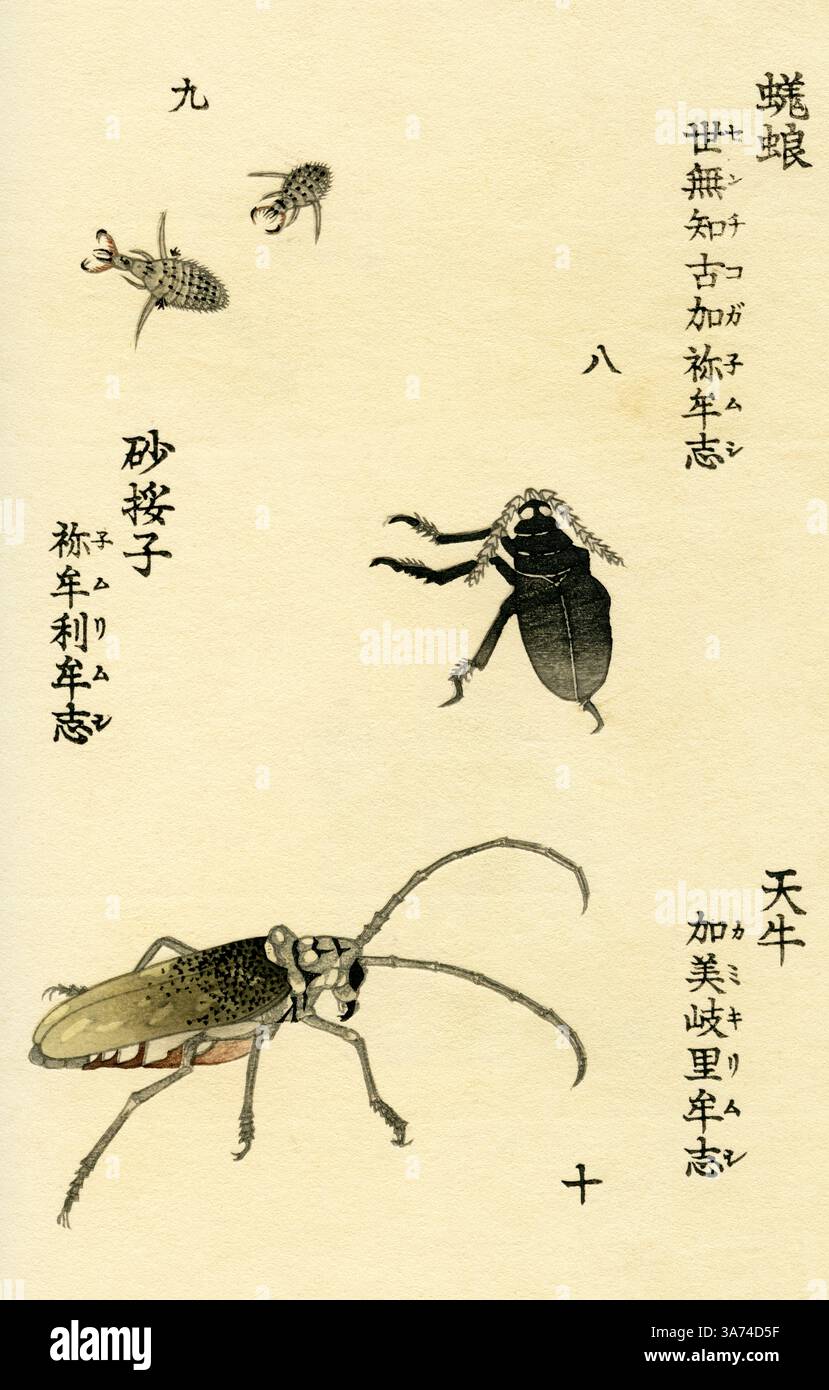 蜣蜋
世無知古加祢牟志
センチコガ子ムシ
八
九
砂挼子
祢牟利牟志
子ムリムシ
天牛
加美岐里牟志
カミキリムシ
十
alamy
a
alamy
Image ID: 3A74D5F
www.alamy.com